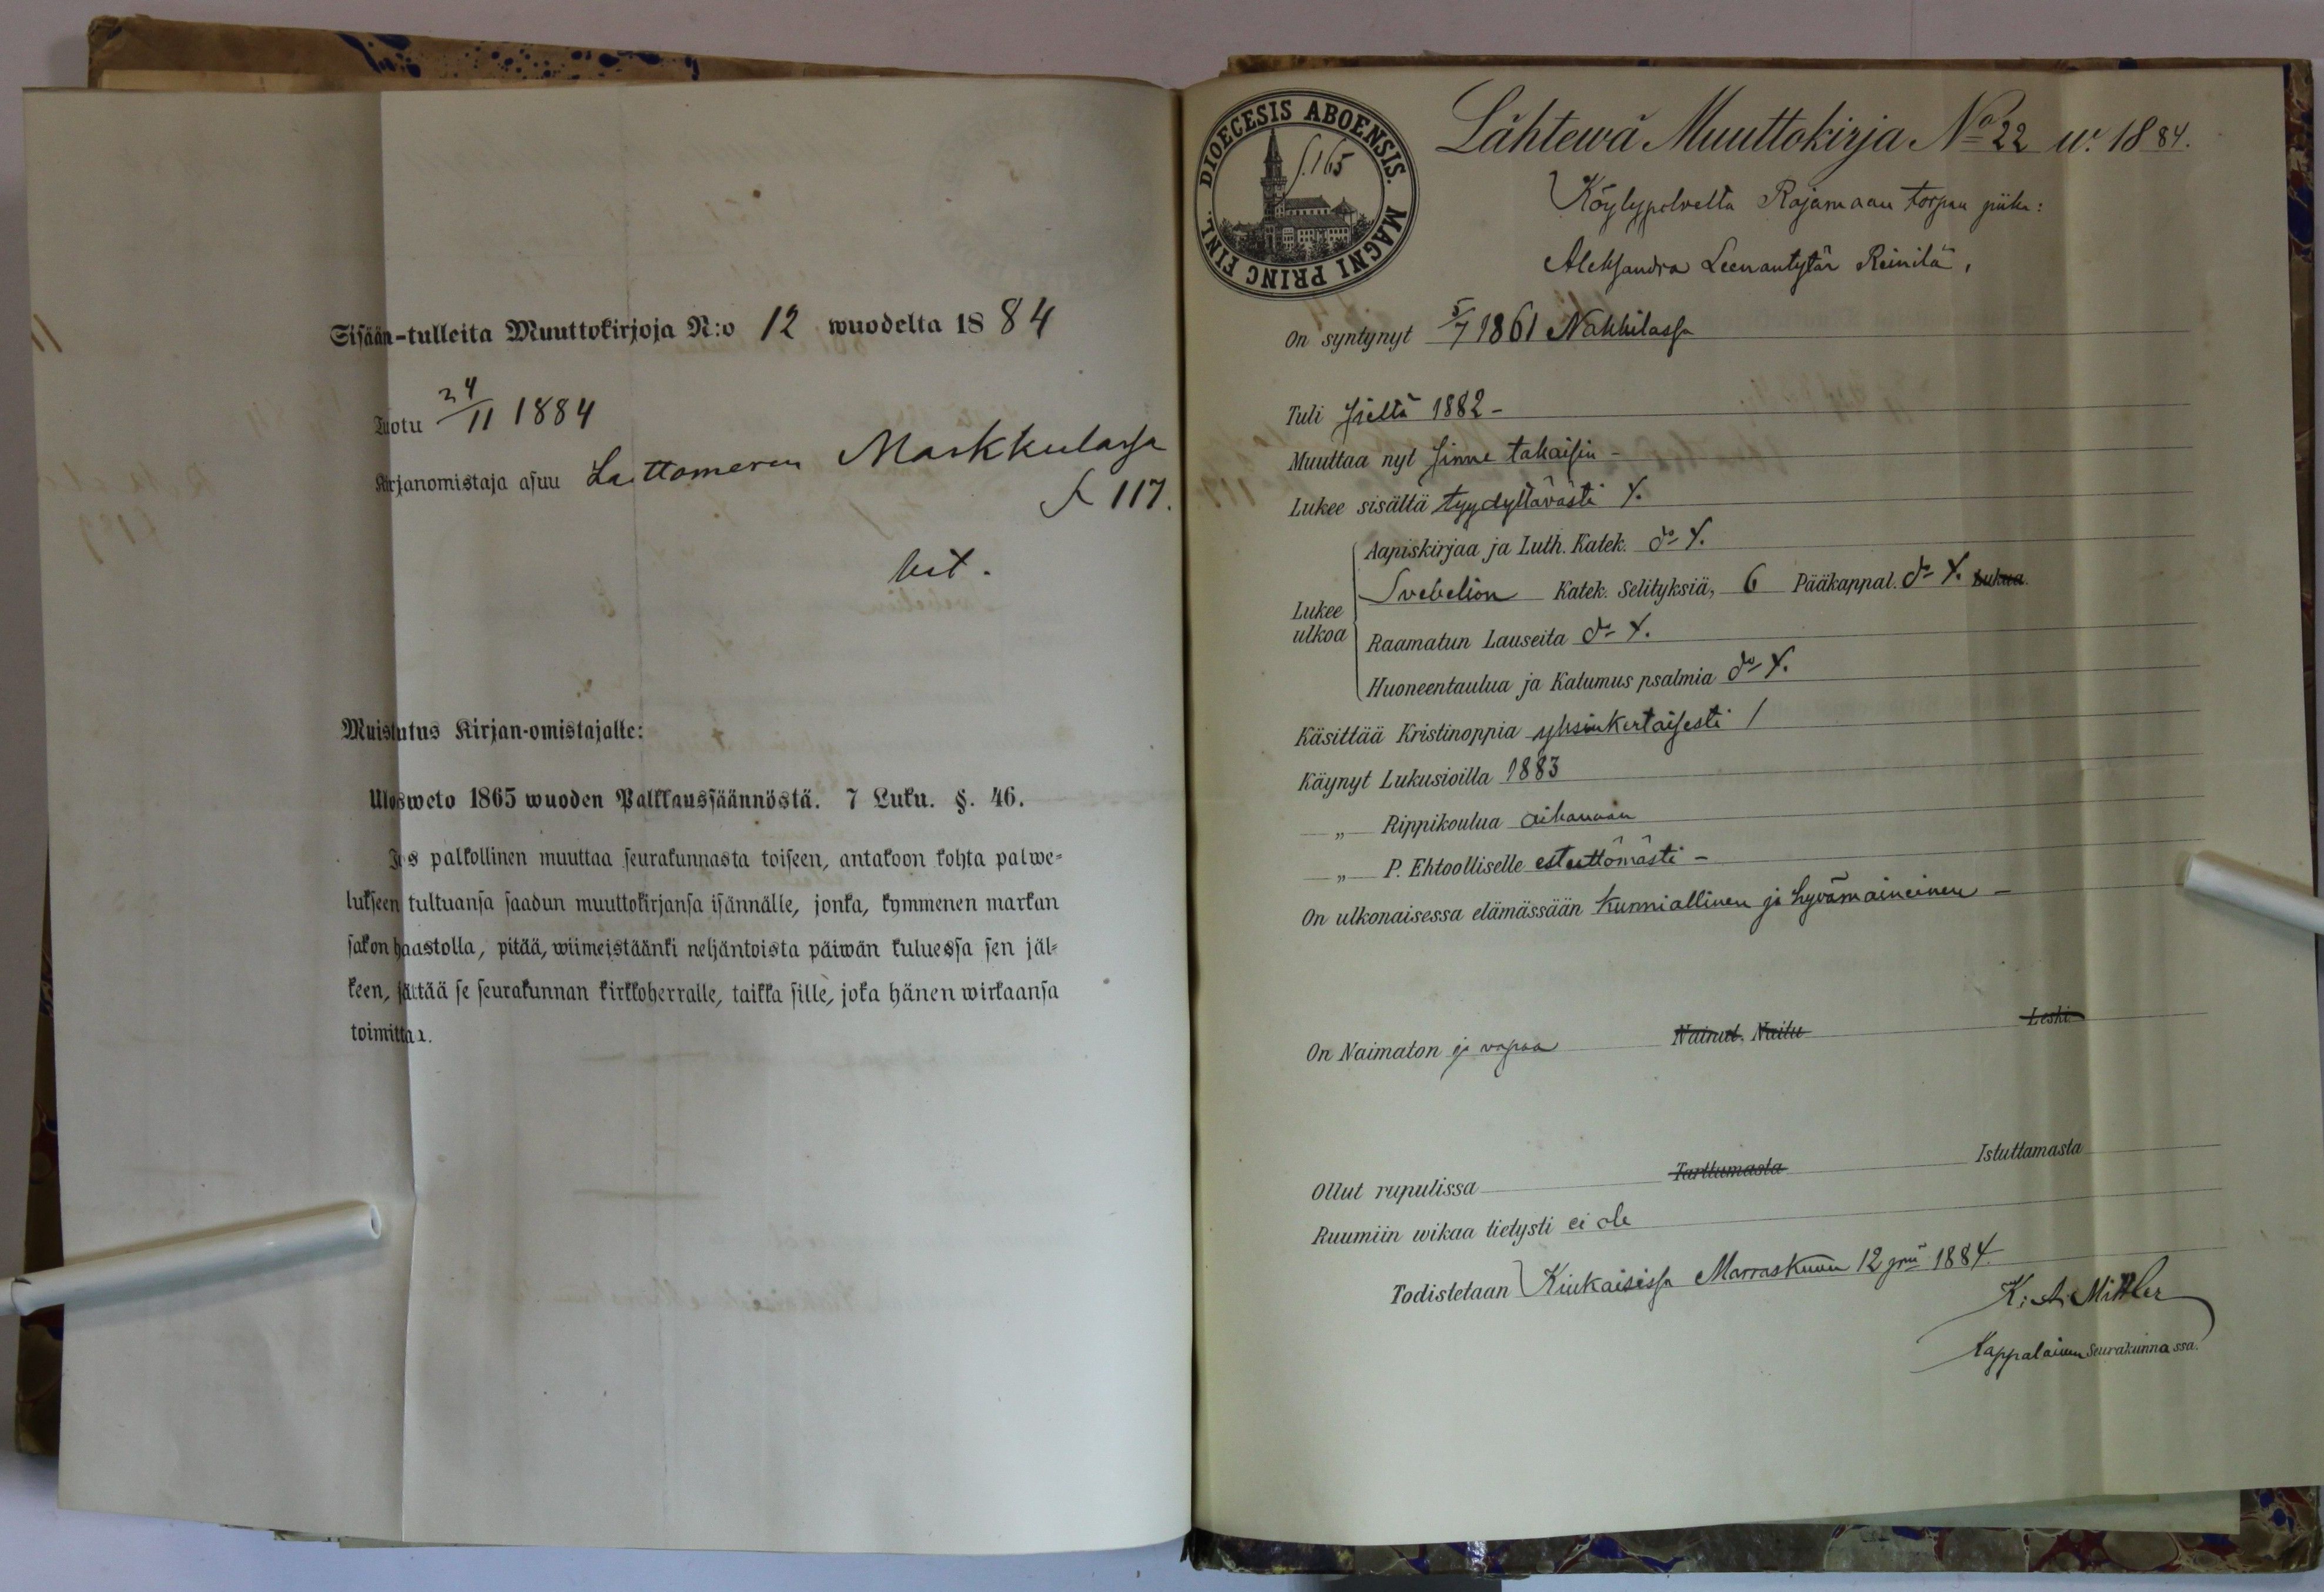 Sisään-tulleita Muuttokirjoja N:o 12 wuodelta 1884
Tuotu 24/11 1884
Kirjanomistaja asuu Lattomeren Markkulassa
S 117.
Muistutus Kirjan-omistajalle:
Ulosweto 1865 wuoden Palkkaussäännöstä. 7 Luku. §. 46.
Jos palkollinen muuttaa seurakunnasta toiseen, antakoon kohta palwe-
lukseen tultuansa saadun muuttokirjansa isännälle, jonka, kymmenen markan
sakon haastolla, pitää, wiimeistäänki neljäntoista päiwän kuluessa sen jäl-
keen, jättää se seurakunnan kirkkoherralle, taikka sille, joka hänen wirkaansa
toimittaa.
DIOECESIS ABOENSIS. MAGNI PRINC FINL.
S. 165
Lähtewä Muuttokirja No 22 w. 1884.
Köylypolvelta Rajamaan torpan piika:
Aleksandra Leenantytär Reinilä,
On syntynyt 5/7 1861 Nakkilassa
Tuli sieltä 1882 -
Muuttaa nyt sinne takaisin -
Lukee sisältä tyydyttävästi Y.
Lukee ulkoa
Aapiskirjaa ja Luth. Katek. do Y.
Svebelion Katek. Selityksiä, 6 Pääkappal. do Y. Lukua.
Raamatun Lauseita do Y.
Huoneentaulua ja Katumus psalmia do Y.
Käsittää Kristinoppia yksinkertaisesti /
Käynyt Lukusioilla 1883
„ Rippikoulua aikanaan
„ P. Ehtoolliselle estettömästi -
On ulkonaisessa elämässään kunniallinen ja hyvämaineinen -
On Naimaton ja vapaa Nainut. Naitu Leski
Ollut rupulissa Tarttumasta Istuttamasta
Ruumiin wikaa tietysti ei ole
Todistetaan Kiukaisissa Marraskuun 12 pnä 1884.
K. A. Mittler
Kappalainen Seurakunnassa.